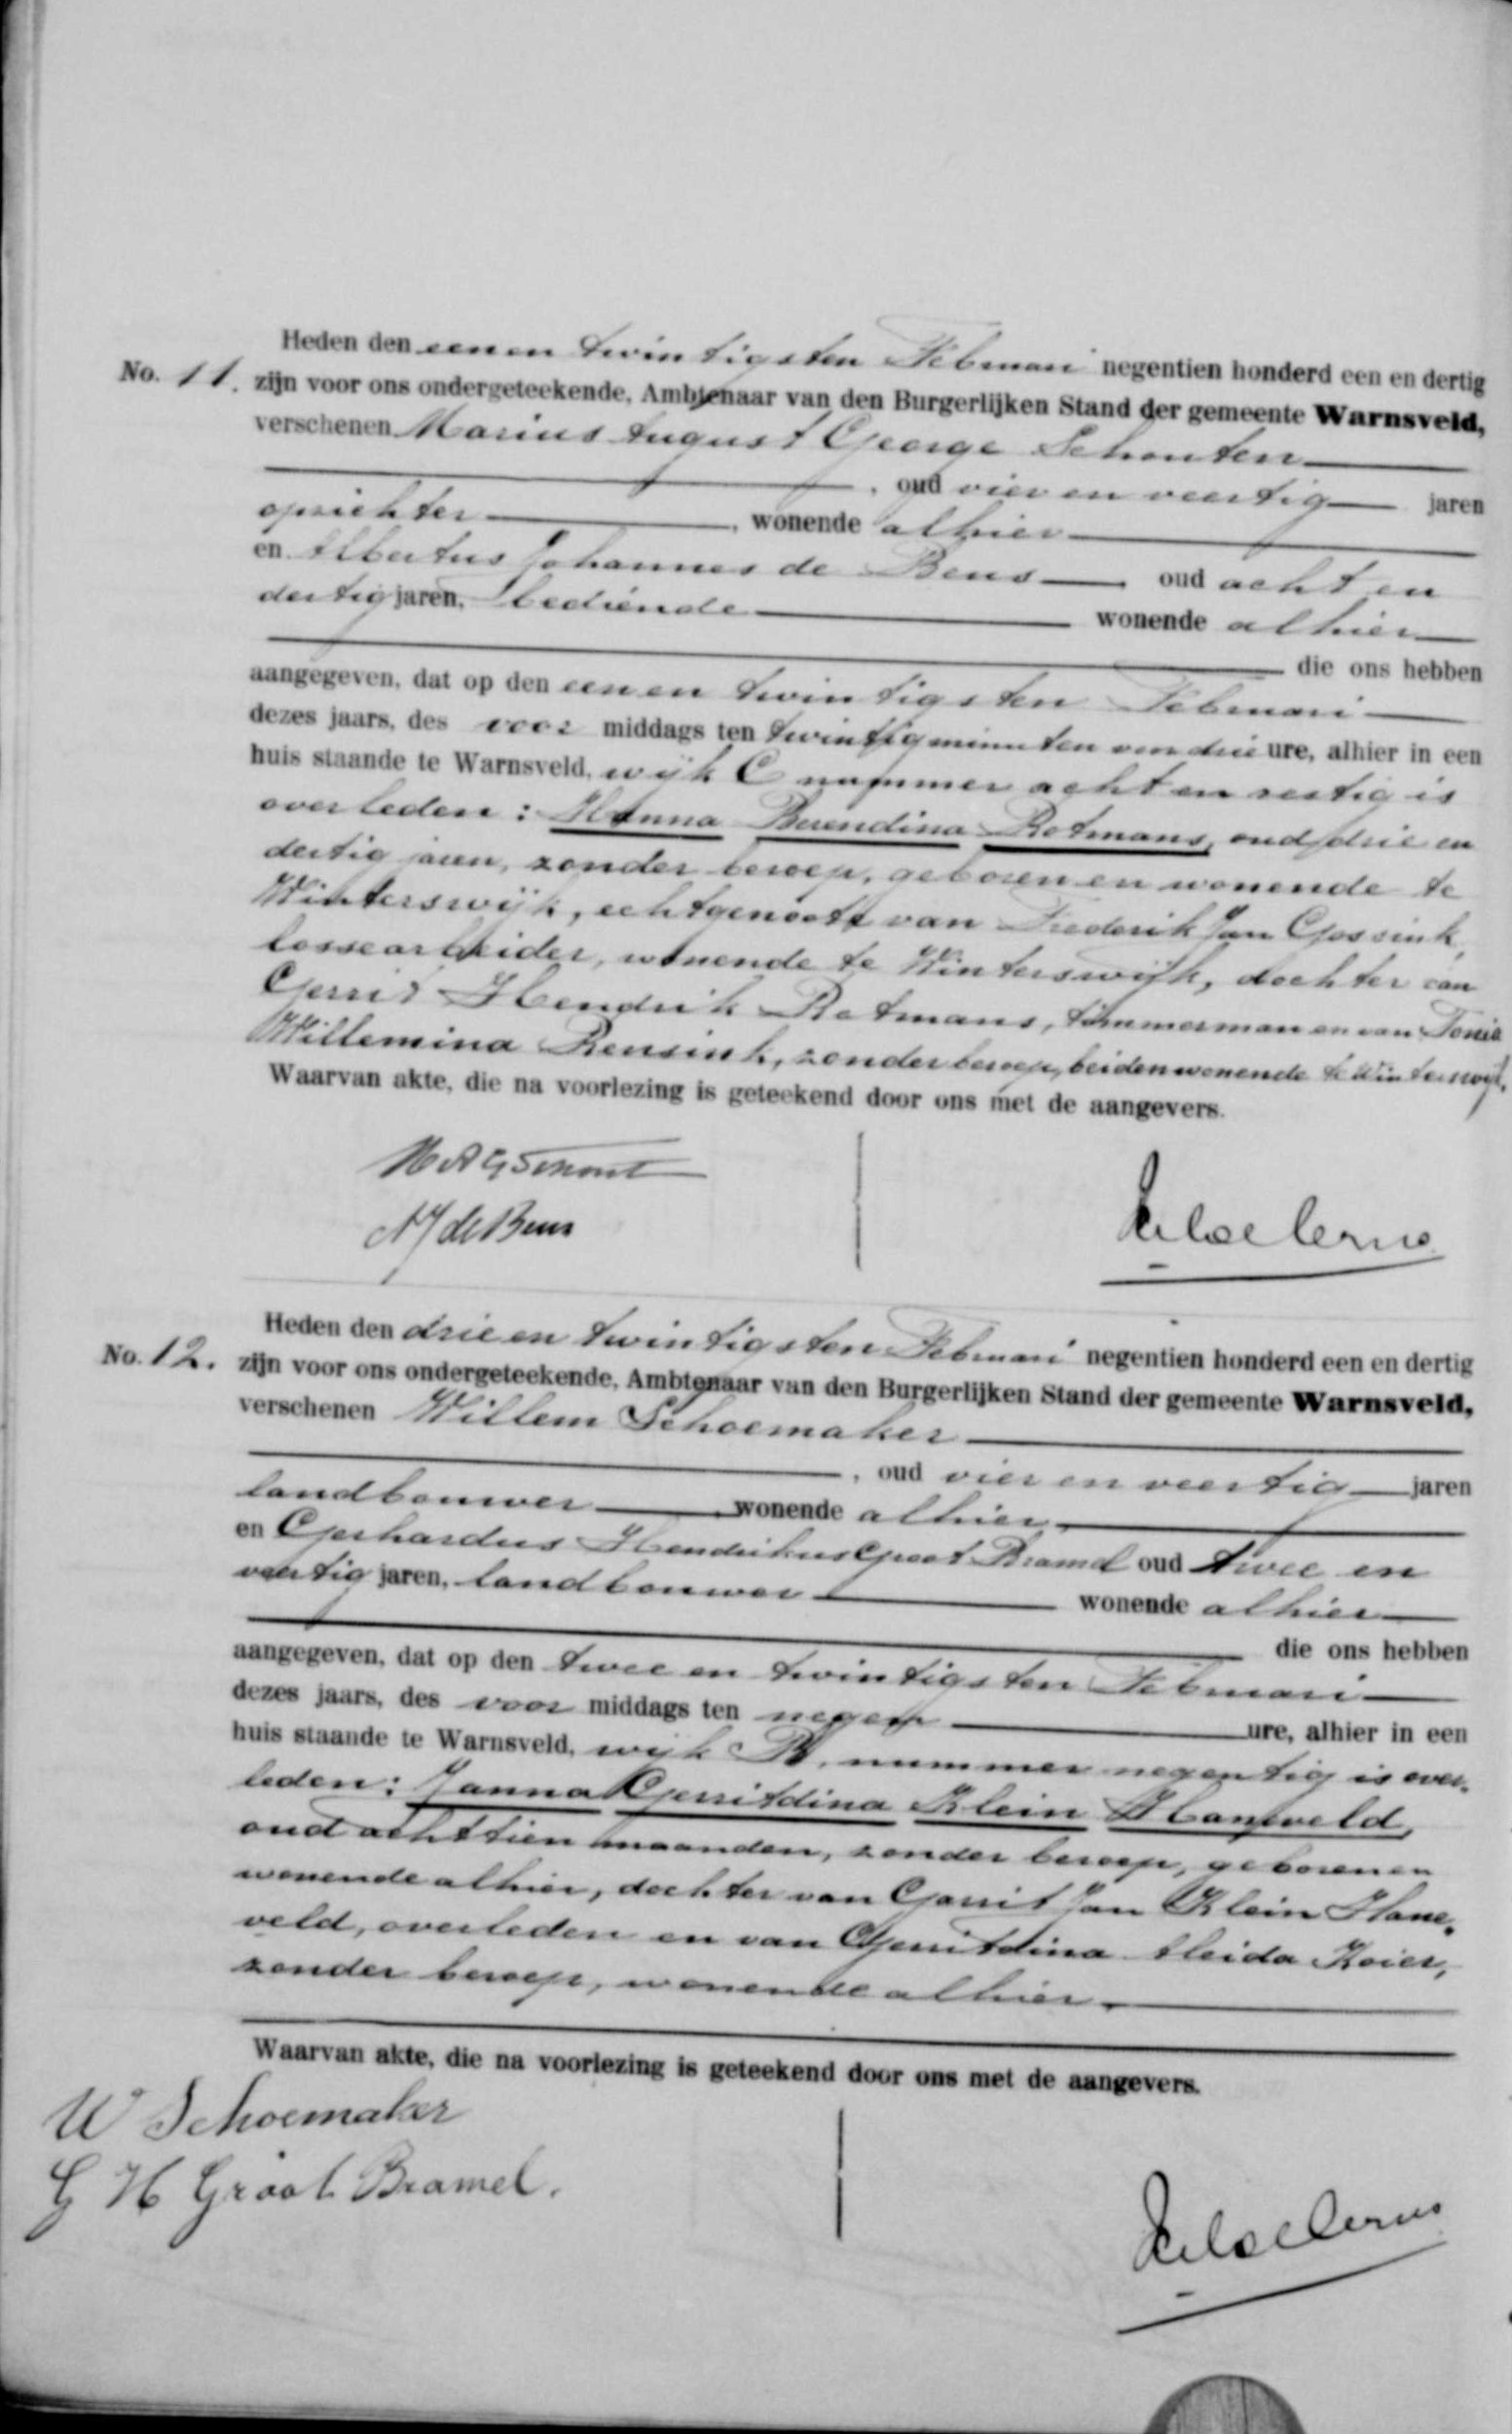 Heden den een en twintigsten Februari negentien honderd een en dertig
No. 11. zijn voor ons ondergeteekende, Ambtenaar van den Burgerlijken Stand der gemeente Warnsveld,
verschenen Marius August George Schouten
, oud vier en veertig jaren
oprichter, wonende alhier
en Albertus Johannes de Beus oud acht en
dertig jaren, bediende wonende alhier
die ons hebben
aangegeven, dat op den een en twintigsten Februari
dezes jaars, des voor middags ten twintig minuten van drie ure, alhier in een
huis staande te Warnsveld, wijk C nummer acht en zestig is
overleden: Hanna Berendina Rotmans, oud drie en
dertig jaren, zonder beroep, geboren en wonende te
Winterswijk, echtgenoote van Frederik Jan Gossink,
losse arbeider, wonende te Winterswijk, dochter van
Gerrit Hendrik Rotmans, timmerman en van Tonia
Willemina Rensink, zonder beroep, beiden wonende te Winterswijk,
Waarvan akte, die na voorlezing is geteekend door ons met de aangevers.
AJ de Beus
Heden den drie en twintigsten Februari negentien honderd een en dertig
No. 12. zijn voor ons ondergeteekende, Ambtenaar van den Burgerlijken Stand der gemeente Warnsveld,
verschenen Willem Schoemaker
, oud vier en veertig jaren
landbouwer, wonende alhier
en Gerhardus Hendrikus Groot Bramel oud twee en
veertig jaren, landbouwer wonende alhier
die ons hebben
aangegeven, dat op den twee en twintigsten Februari
dezes jaars, des voor middags ten negen ure, alhier in een
huis staande te Warnsveld, wijk B, nummer negentig is over-
leden: Janna Gerritdina Klein Haneveld,
oud achttien maanden, zonder beroep, geboren en
wonende alhier, dochter van Garrit Jan Klein Hane-
veld, overleden en van Gerritdina Aleida Koier,
zonder beroep, wonende alhier.
Waarvan akte, die na voorlezing is geteekend door ons met de aangevers.
W Schoemaker
G H Groot Bramel.